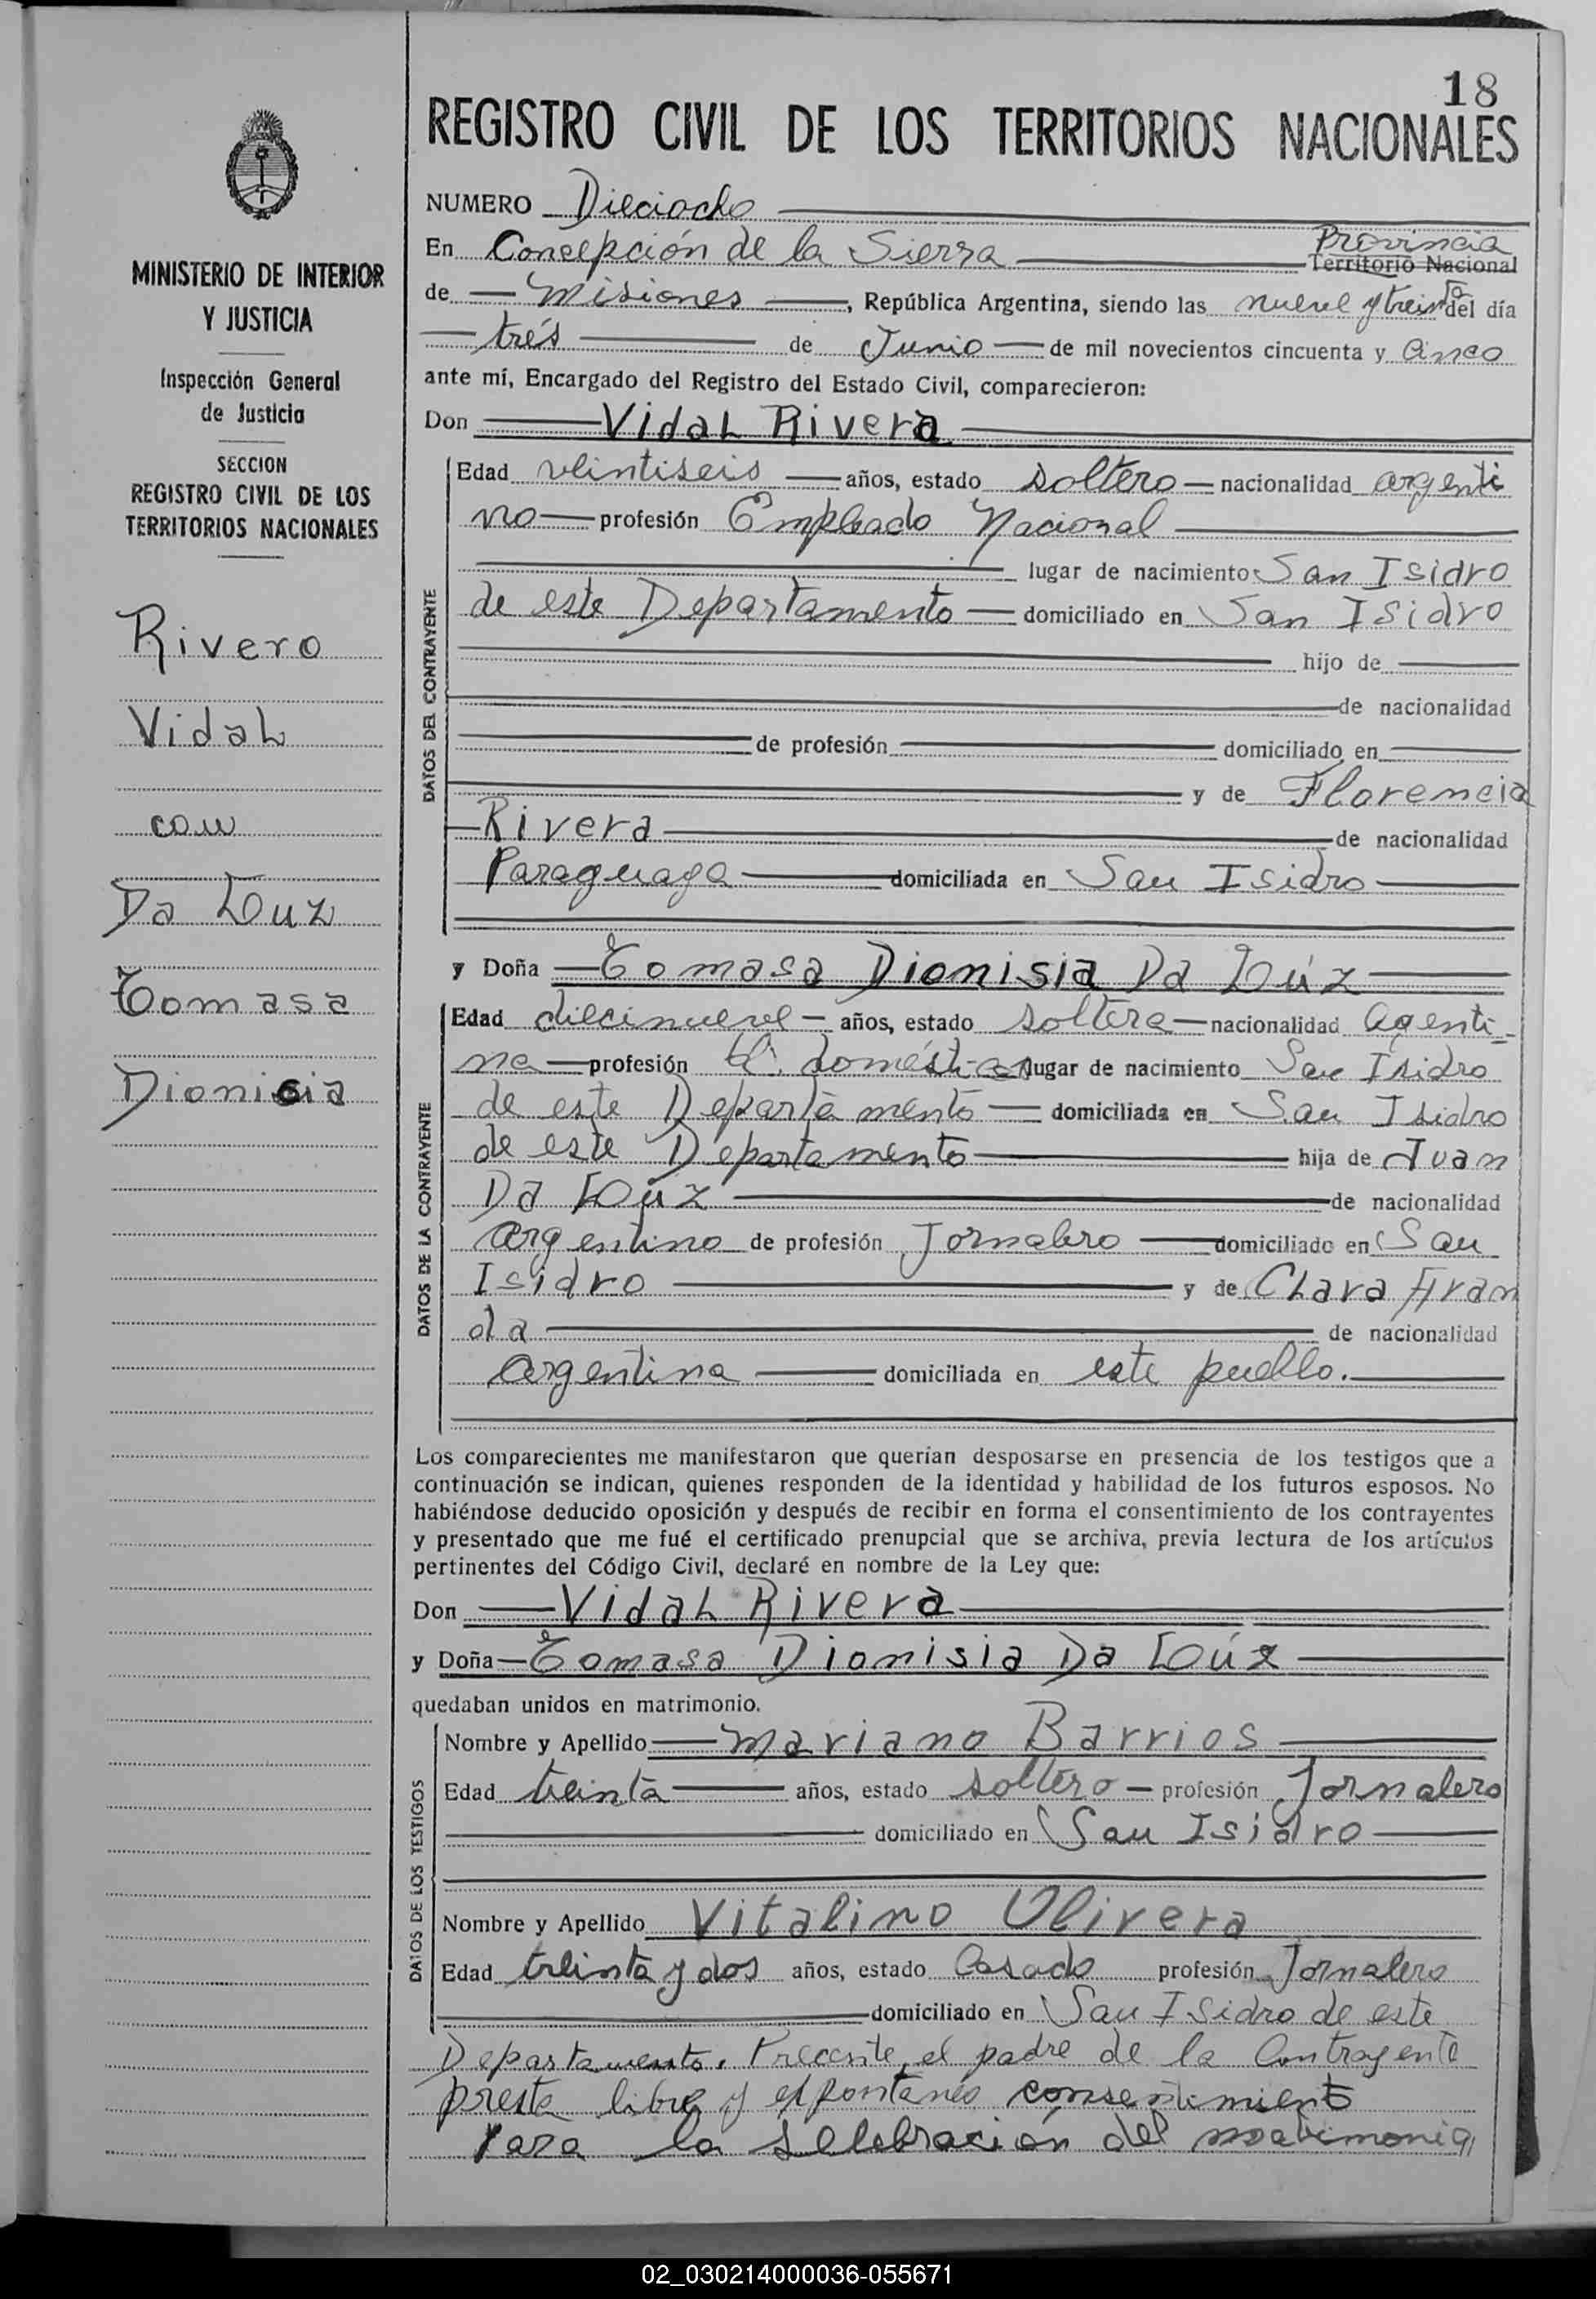 18
REGISTRO CIVIL DE LOS TERRITORIOS NACIONALES
MINISTERIO DE INTERIOR
Y JUSTICIA
Inspección General
de Justicia
SECCION
REGISTRO CIVIL DE LOS
TERRITORIOS NACIONALES
Rivero
Vidal
con
Da Luz
Tomasa
Dionicia
NUMERO Dieciocho
En Concepción de la Sierra Provincia
Territorio Nacional
de Misiones, República Argentina, siendo las nueve y treinta del día
trés de Junio de mil novecientos cincuenta y cinco
ante mí, Encargado del Registro del Estado Civil, comparecieron:
Don Vidal Rivera
DATOS DEL CONTRAYENTE
Edad veintiseis años, estado soltero nacionalidad argenti
no profesión Empleado Nacional
lugar de nacimiento San Isidro
de este Departamento domiciliado en San Isidro
hijo de
de nacionalidad
de profesión domiciliado en
y de Florencia
Rivera de nacionalidad
Paraguaya domiciliada en San Isidro
y Doña Tomasa Dionisia Da Lúz
DATOS DE LA CONTRAYENTE
Edad diecinueve años, estado soltera nacionalidad Agenti-
na profesión Q. doméstica lugar de nacimiento San Isidro
de este Departamento domiciliada en San Isidro
de este Departamento hija de Juan
Da Lúz de nacionalidad
argentino de profesión Jornalero domiciliado en San
Isidro y de Clara Aran
da de nacionalidad
argentina domiciliada en este pueblo.
Los comparecientes me manifestaron que querían desposarse en presencia de los testigos que a
continuación se indican, quienes responden de la identidad y habilidad de los futuros esposos. No
habiéndose deducido oposición y después de recibir en forma el consentimiento de los contrayentes
y presentado que me fué el certificado prenupcial que se archiva, previa lectura de los artículos
pertinentes del Código Civil, declaré en nombre de la Ley que:
Don Vidal Rivera
y Doña Tomasa Dionisia Da Lúz
quedaban unidos en matrimonio.
DATOS DE LOS TESTIGOS
Nombre y Apellido Mariano Barrios
Edad treinta años, estado soltero profesión Jornalero
domiciliado en San Isidro
Nombre y Apellido Vitalino Olivera
Edad treinta y dos años, estado Casado profesión Jornalero
domiciliado en San Isidro de este
Departamento. Precente, el padre de la Contrayente
presta libre y espontáneo consentimiento
para la selebración del matrimonio,
02_030214000036-055671